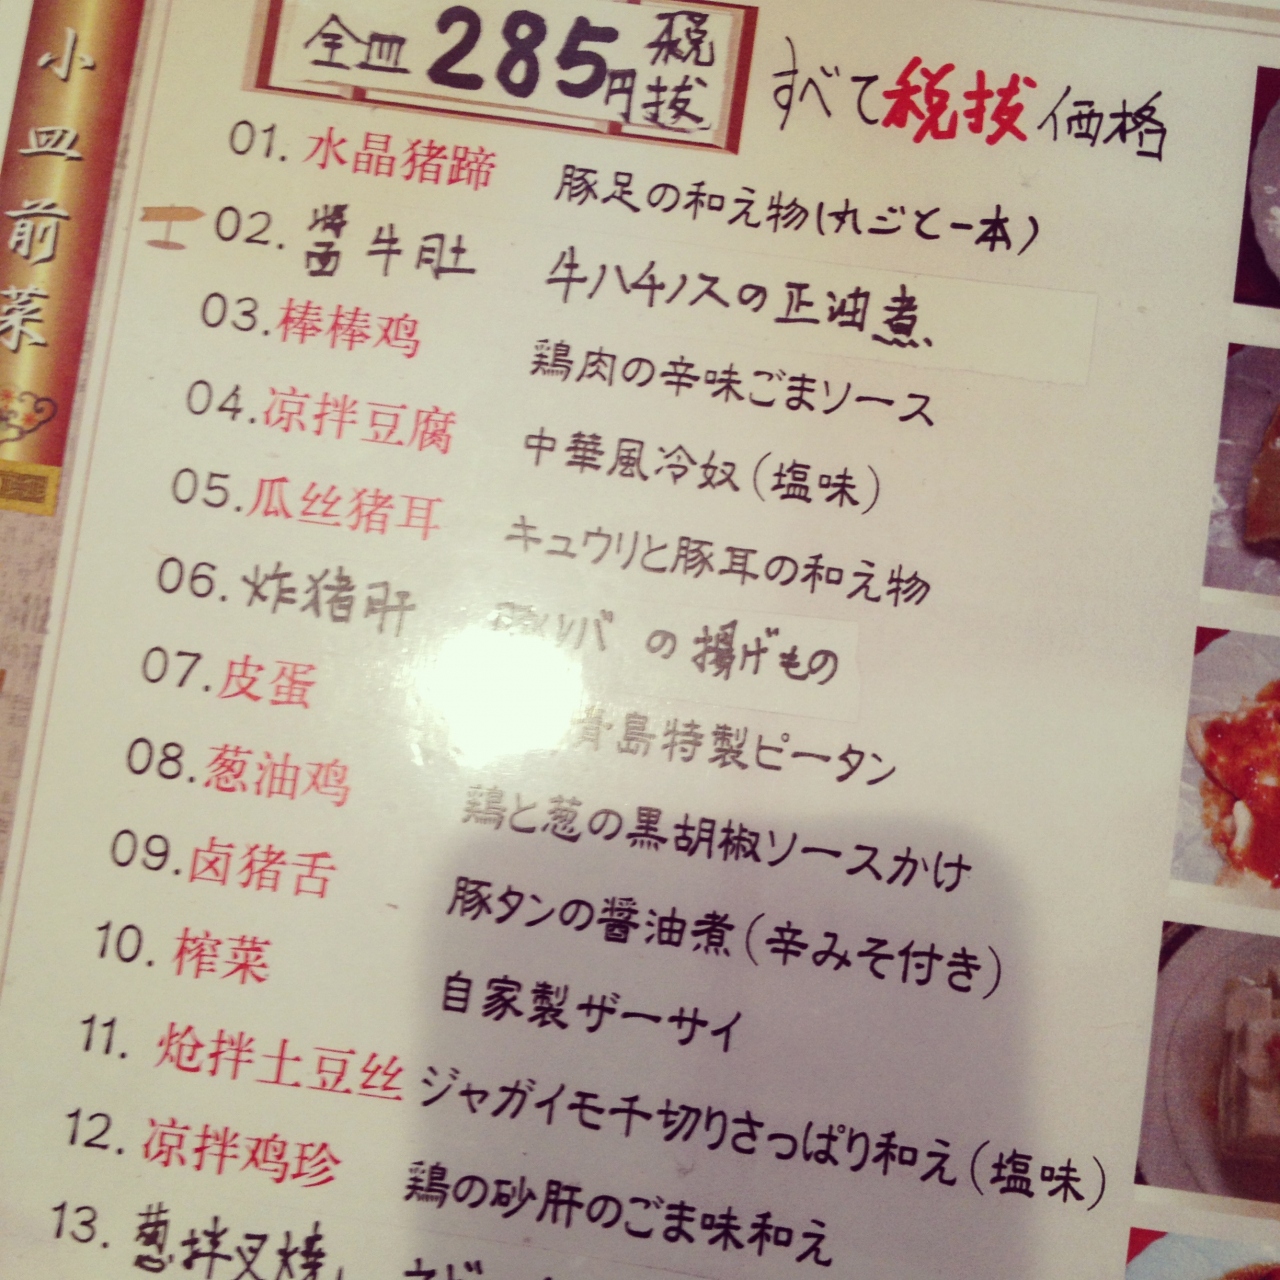 小皿前菜
全皿285円税抜
すべて税抜価格
01. 水晶猪蹄 豚足の和え物(丸ごと一本)
02. 醤牛肚 牛ハチノスの正油煮
03. 棒棒鸡 鶏肉の辛味ごまソース
04. 凉拌豆腐 中華風冷奴(塩味)
05. 瓜丝猪耳 キュウリと豚耳の和え物
06. 炸猪肝 の揚げもの
07. 皮蛋 青島特製ピータン
08. 葱油鸡 鶏と葱の黒胡椒ソースかけ
09. 卤猪舌 豚タンの醤油煮(辛みそ付き)
10. 榨菜 自家製ザーサイ
11. 炝拌土豆丝 ジャガイモ千切りさっぱり和え(塩味)
12. 凉拌鸡珍 鶏の砂肝のごま味和え
13. 葱拌叉焼